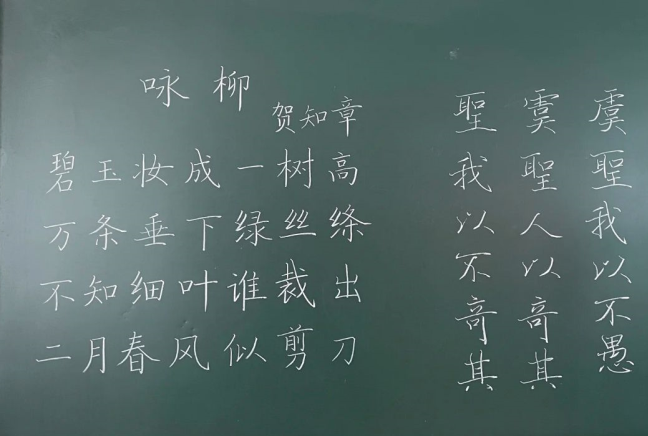 咏柳
贺知章
碧玉妆成一树高
万条垂下绿丝绦
不知细叶谁裁出
二月春风似剪刀
虞聖我以不愚
寞聖人以奇其
聖我以不奇其